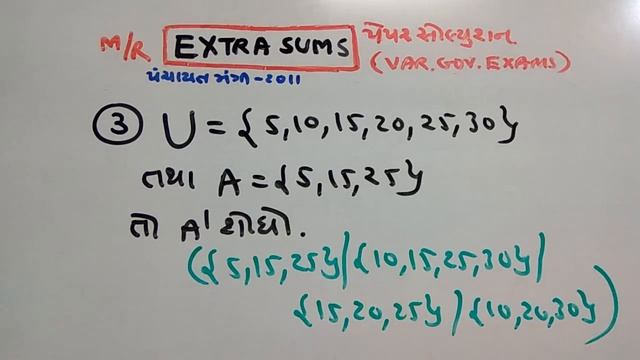 M/R EXTRA SUMS પેપર સોલ્યુશન
(VAR. GOV. EXAMS)
પંચાયત મંત્રી-૨૦૧૧
③ U = {5,10,15,20,25,30}
તથા A = {5,15,25}
તો A' શોધો.
({5,15,25} / {10,15,25,30} /
{15,20,25} / {10,20,30})